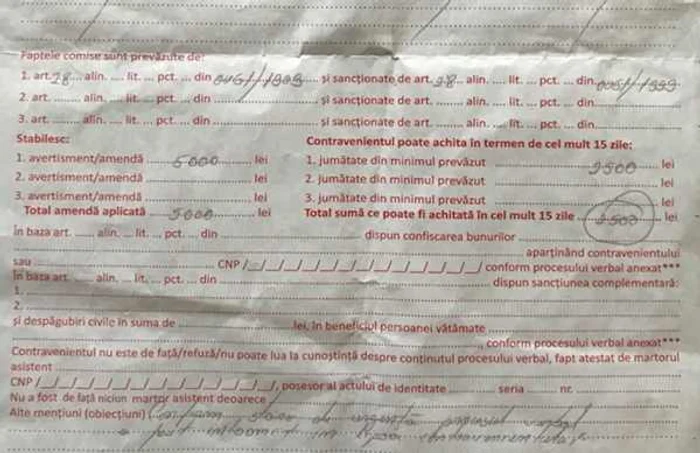 Faptele comise sunt prevăzute de:
1. art. 28 alin. .... lit. ... pct. ... din OUG 1/1999 .... și sancționate de art. 28 alin. .... lit. ... pct. ... din
2. art. ........ alin. .... lit. ... pct. ... din .................... și sancționate de art. ........ alin. .... lit. ... pct. ... din ..................
3. art. ........ alin. .... lit. ... pct. ... din .................... și sancționate de art. ........ alin. .... lit. ... pct. ... din ..................
Stabilesc:
1. avertisment/amendă ..... 5000 .......... lei
2. avertisment/amendă .......................... lei
3. avertisment/amendă .......................... lei
Total amendă aplicată ..... 5000 .......... lei
Contravenientul poate achita în termen de cel mult 15 zile:
1. jumătate din minimul prevăzut .......... 2500 ..... lei
2. jumătate din minimul prevăzut .......................... lei
3. jumătate din minimul prevăzut .......................... lei
Total sumă ce poate fi achitată în cel mult 15 zile ..... 2500 ..... lei
În baza art. ..... alin. ... lit. ... pct. ... din .............................. dispun confiscarea bunurilor ..............................
.................... aparținând contravenientului
sau .............................. CNP /_/_/_/_/_/_/_/_/_/_/_/_/_/ conform procesului verbal anexat***
În baza art. ..... alin. ... lit. ... pct. ... din .............................. dispun sancțiunea complementară:
1. ..............................
2. ..............................
și despăgubiri civile în suma de .............................. lei, în beneficiul persoanei vătămate ..............................
.............................., conform procesului verbal anexat***
Contravenientul nu este de față/refuză/nu poate lua la cunoștință despre conținutul procesului verbal, fapt atestat de martorul
asistent ..............................
CNP /_/_/_/_/_/_/_/_/_/_/_/_/_/, posesor al actului de identitate .......... seria ........ nr. ..........
Nu a fost de față niciun martor asistent deoarece ..............................
Alte mențiuni (obiecțiuni)